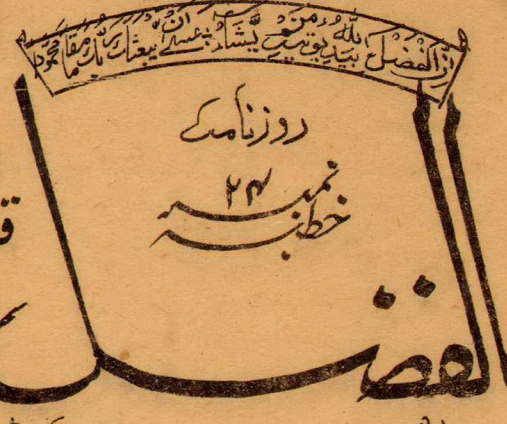 ان الفضل بید اللہ یؤتیہ من یشاء عسی ان یبعثک ربک مقاما محمودا
روزنامہ
خطبہ نمبر ۲۴
الفضل